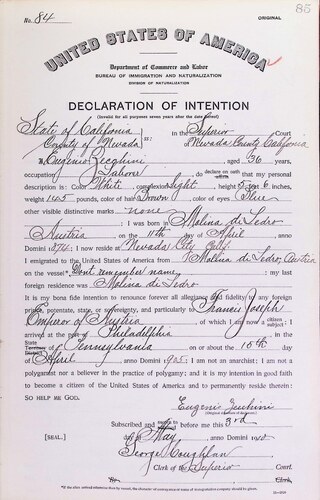 85
No. 84
ORIGINAL
UNITED STATES OF AMERICA
Department of Commerce and Labor
BUREAU OF IMMIGRATION AND NATURALIZATION
DIVISION OF NATURALIZATION
DECLARATION OF INTENTION
(Invalid for all purposes seven years after the date hereof)
State of California
County of Nevada ss: In the Superior Court
Nevada County California
I, Eugenio Zecchini, aged 36 years,
occupation Laborer, do declare on oath that my personal
description is: Color White, complexion light, height 5 feet inches,
weight 145 pounds, color of hair Brown, color of eyes Blue
other visible distinctive marks none
I was born in Molina di Ledro
Austria on the 11th day of April, anno
Domini 1874; I now reside at Nevada City Calif.
I emigrated to the United States of America from Mollina di Ledro, Austria
on the vessel* Dont remember name; my last
foreign residence was Molina di Ledro
It is my bona fide intention to renounce forever all allegiance and fidelity to any foreign
prince, potentate, state, or sovereignty, and particularly to Francis Joseph
Emperor of Austria, of which I am now a citizen subject; I
arrived at the port of Philadelphia, in the
State Territory District of Pennsylvania on or about the 15th day
of April, anno Domini 1905; I am not an anarchist; I am not a
polygamist nor a believer in the practice of polygamy; and it is my intention in good faith
to become a citizen of the United States of America and to permanently reside therein:
SO HELP ME GOD.
Eugenio Zecchini
(Original signature of declarant)
Subscribed and sworn to before me this 3rd
[SEAL.] day of May, anno Domini 1910
George Coughlan
Clerk of the Superior Court.